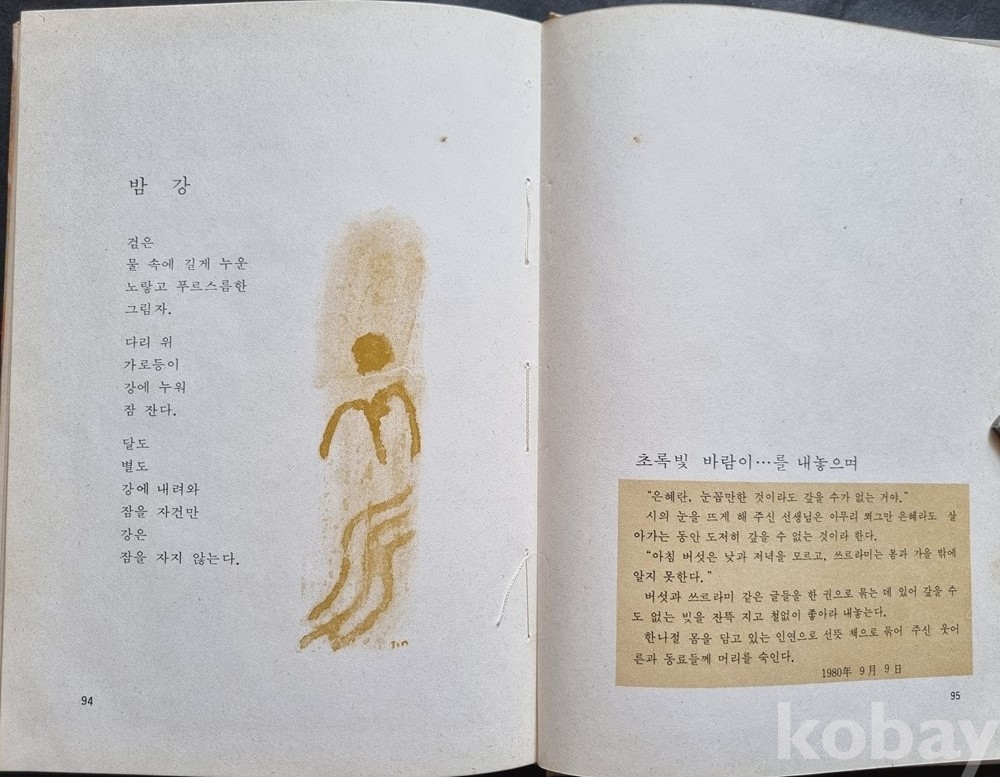 밤 강
검은
물 속에 길게 누운
노랗고 푸르스름한
그림자.
다리 위
가로등이
강에 누워
잠 잔다.
달도
별도
강에 내려와
잠을 자건만
강은
잠을 자지 않는다.
Jin
94
초록빛 바람이…를 내놓으며
"은혜란, 눈꼽만한 것이라도 갚을 수가 없는 거야."
시의 눈을 뜨게 해 주신 선생님은 아무리 쬐그만 은혜라도 살
아가는 동안 도저히 갚을 수 없는 것이라 한다.
"아침 버섯은 낮과 저녁을 모르고, 쓰르라미는 봄과 가을 밖에
알지 못한다."
버섯과 쓰르라미 같은 글들을 한 권으로 묶는 데 있어 갚을 수
도 없는 빚을 잔뜩 지고 철없이 좋아라 내놓는다.
한나절 몸을 담고 있는 인연으로 선뜻 책으로 묶어 주신 웃어
른과 동료들께 머리를 숙인다.
1980年 9月 9日
95
kobay